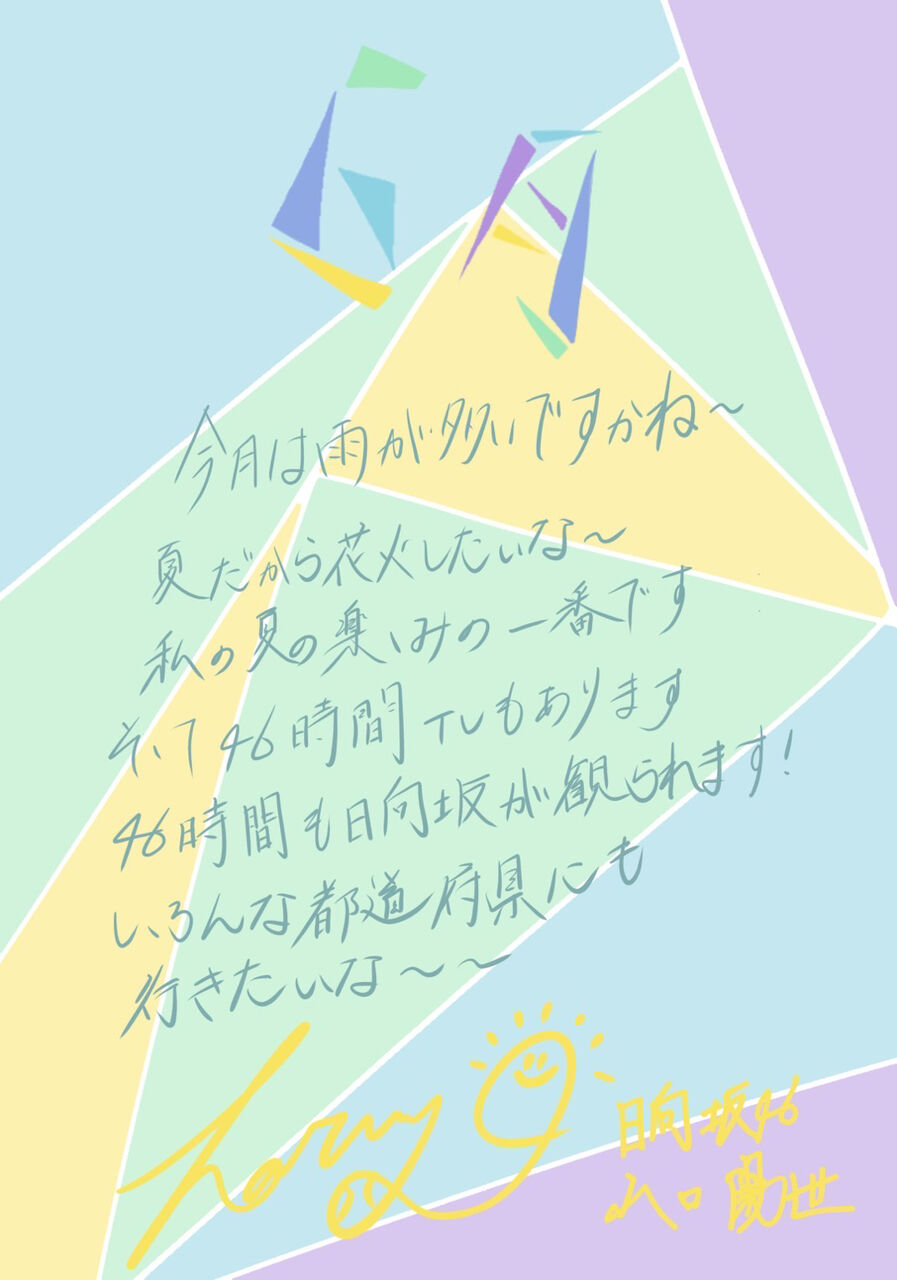 6月
今月は雨が多いですかね〜
夏だから花火したいな〜
私の夏の楽しみの一番です
そして46時間TVもあります
46時間も日向坂が観られます!
いろんな都道府県にも
行きたいな〜〜
日向坂46
山口陽世